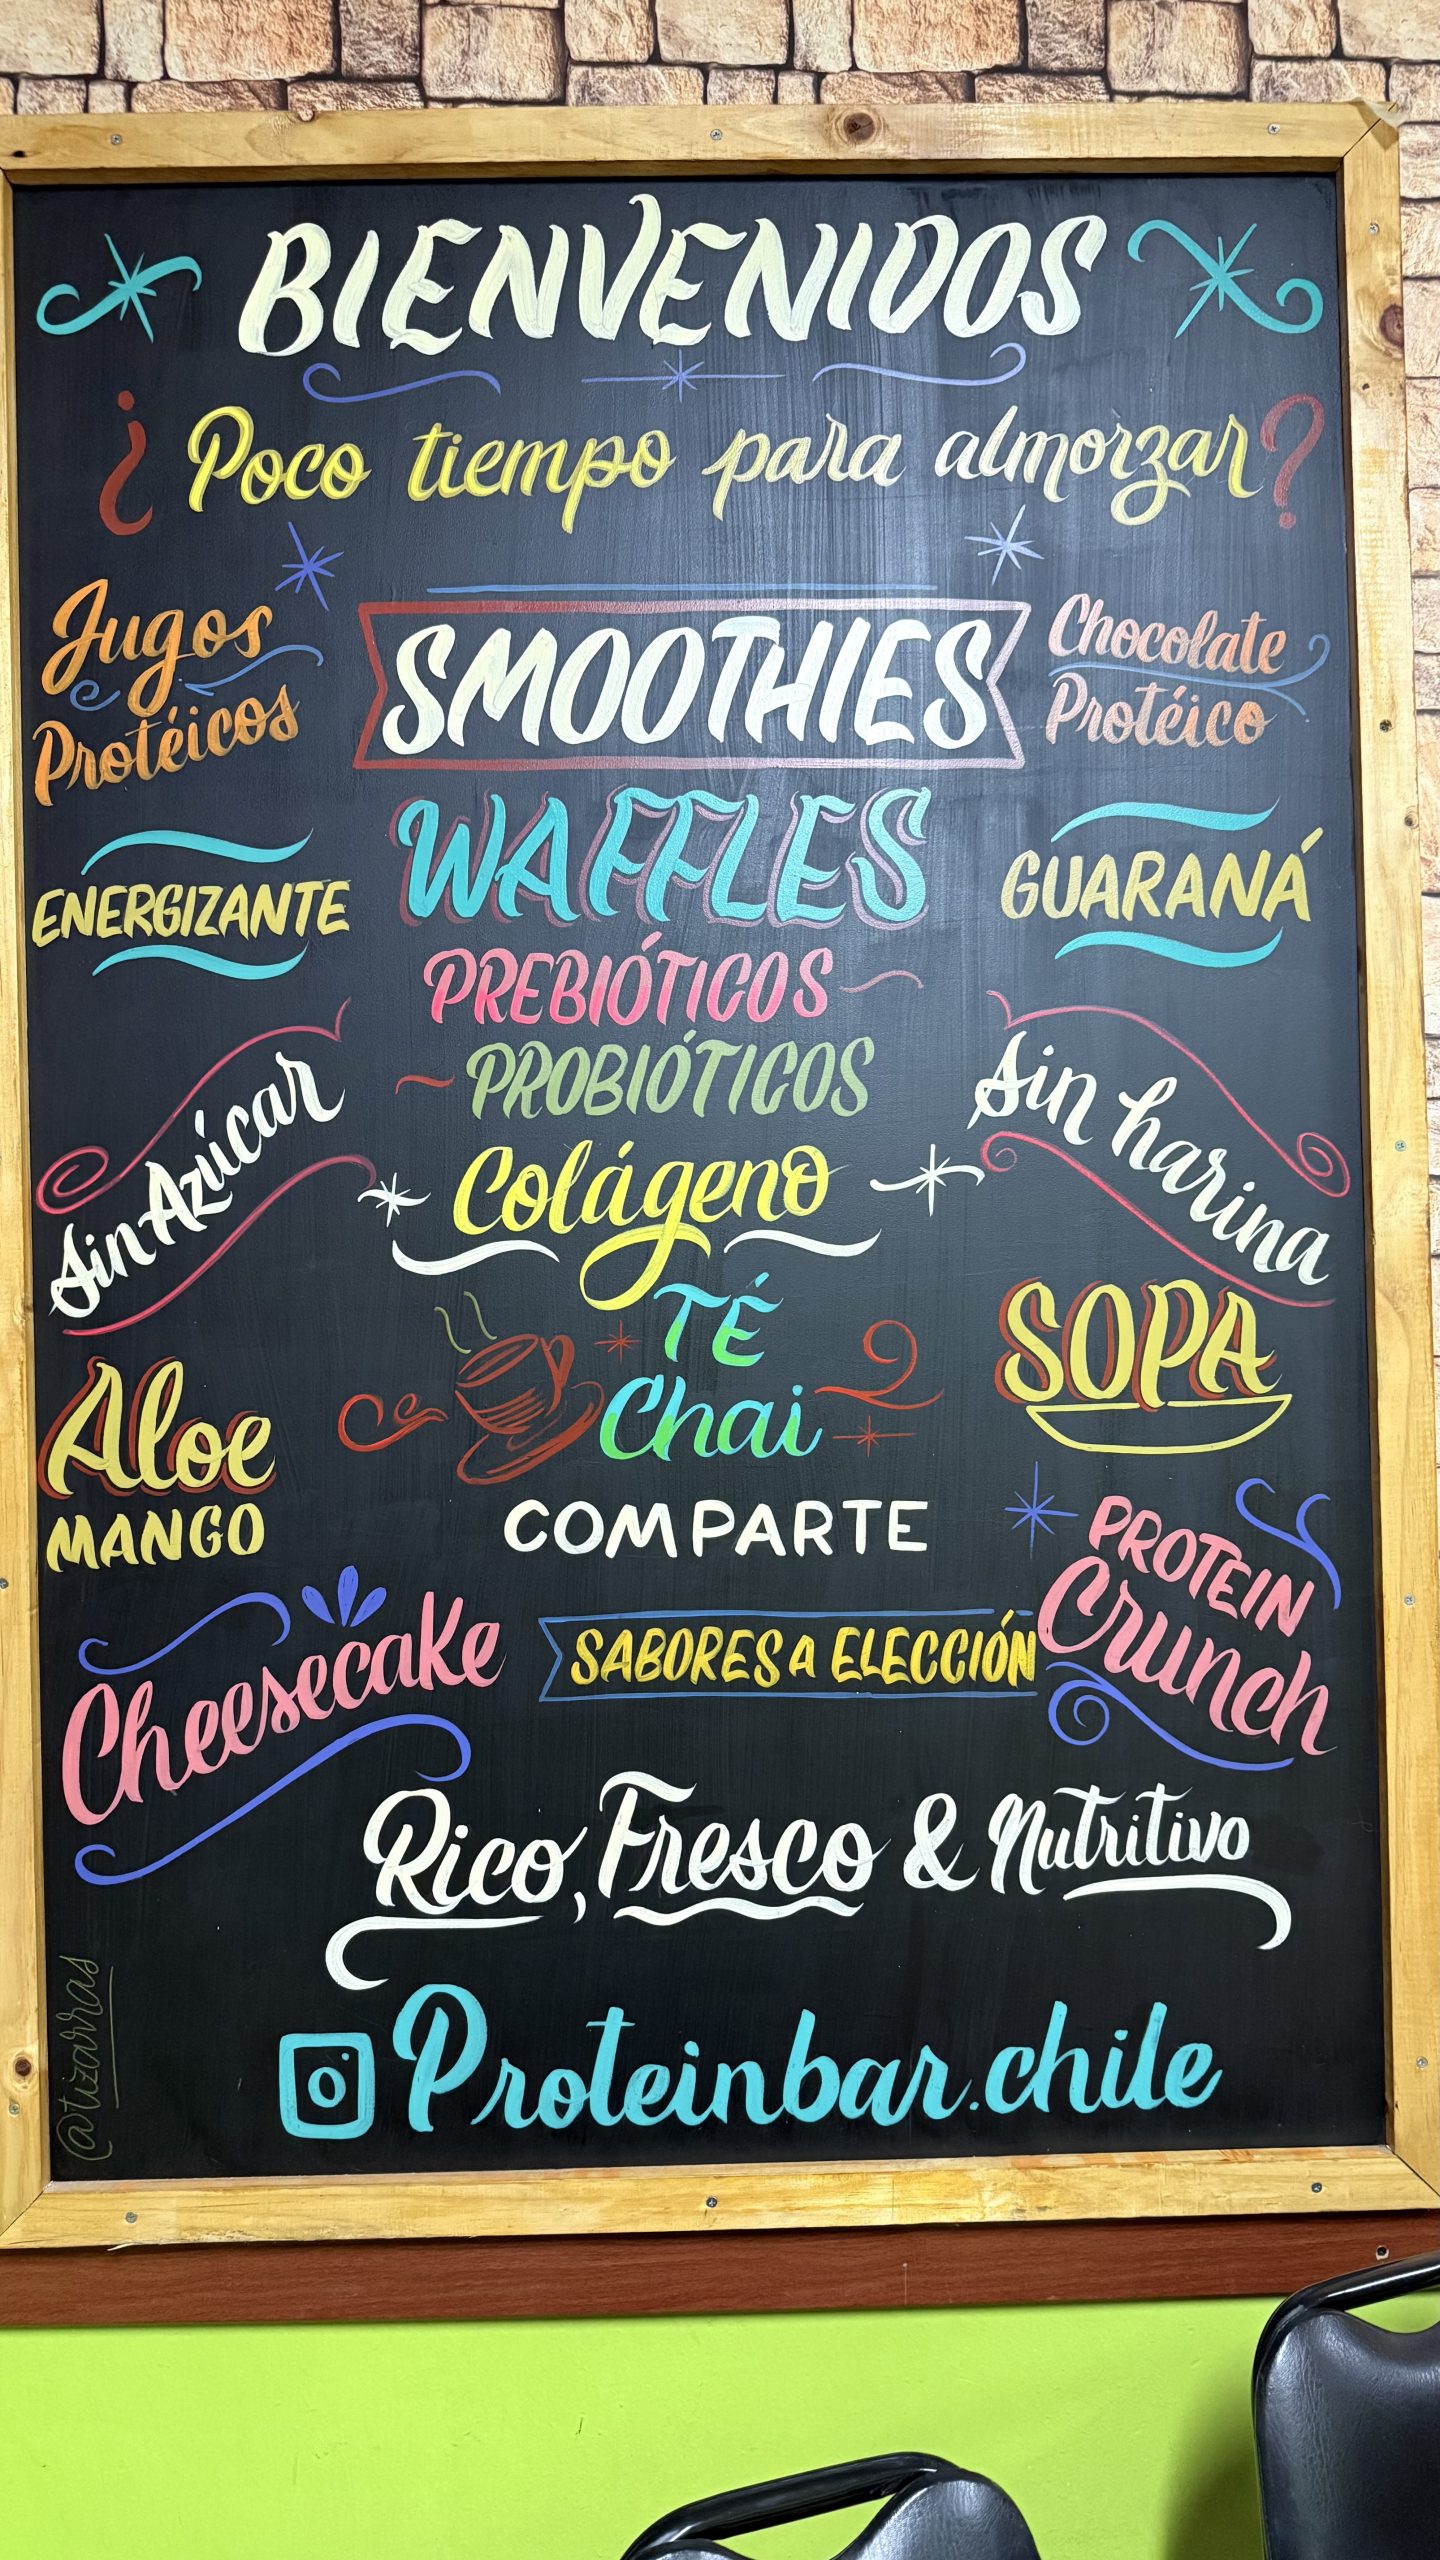 BIENVENIDOS
¿Poco tiempo para almorzar?
Jugos
Protéicos
SMOOTHIES
Chocolate
Protéico
WAFFLES
ENERGIZANTE
GUARANÁ
PREBIÓTICOS
PROBIÓTICOS
Sin Azúcar
Colágeno
Sin harina
TÉ
Chai
SOPA
Aloe
MANGO
COMPARTE
Cheesecake
SABORES A ELECCIÓN
PROTEIN
Crunch
Rico, Fresco & Nutritivo
Proteinbar.chile
@tizarras